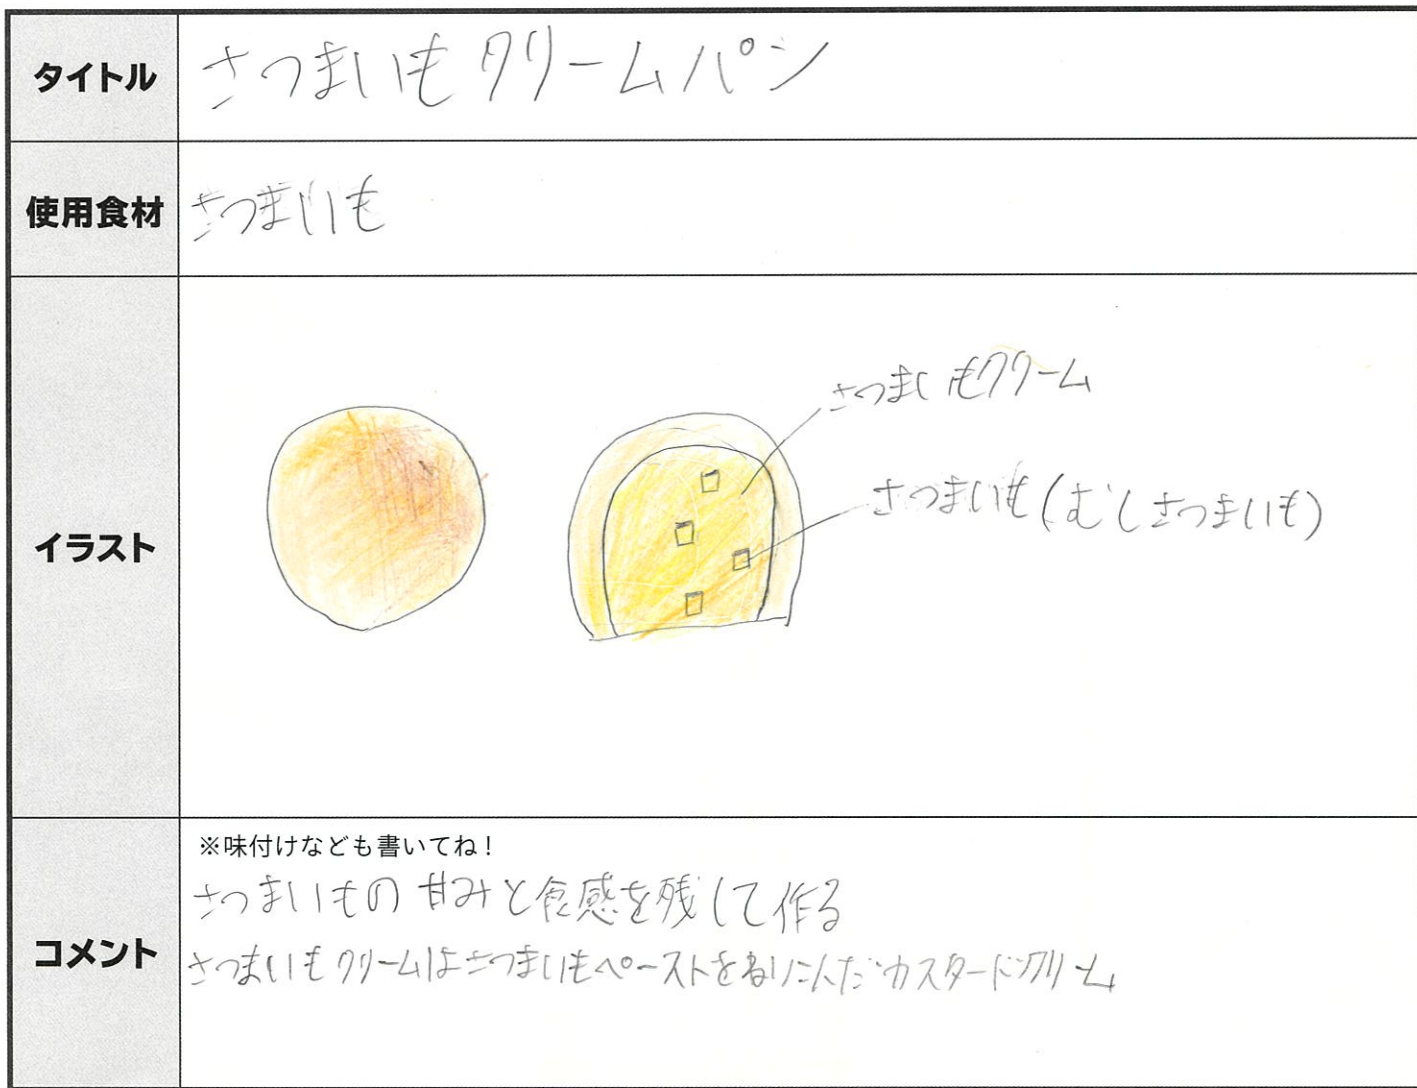 タイトル
さつまいもクリームパン
使用食材
さつまいも
イラスト
さつまいもクリーム
さつまいも(むしさつまいも)
コメント
※味付けなども書いてね!
さつまいもの甘みと食感を残して作る
さつまいもクリームはさつまいもペーストをねりこんだカスタードクリーム